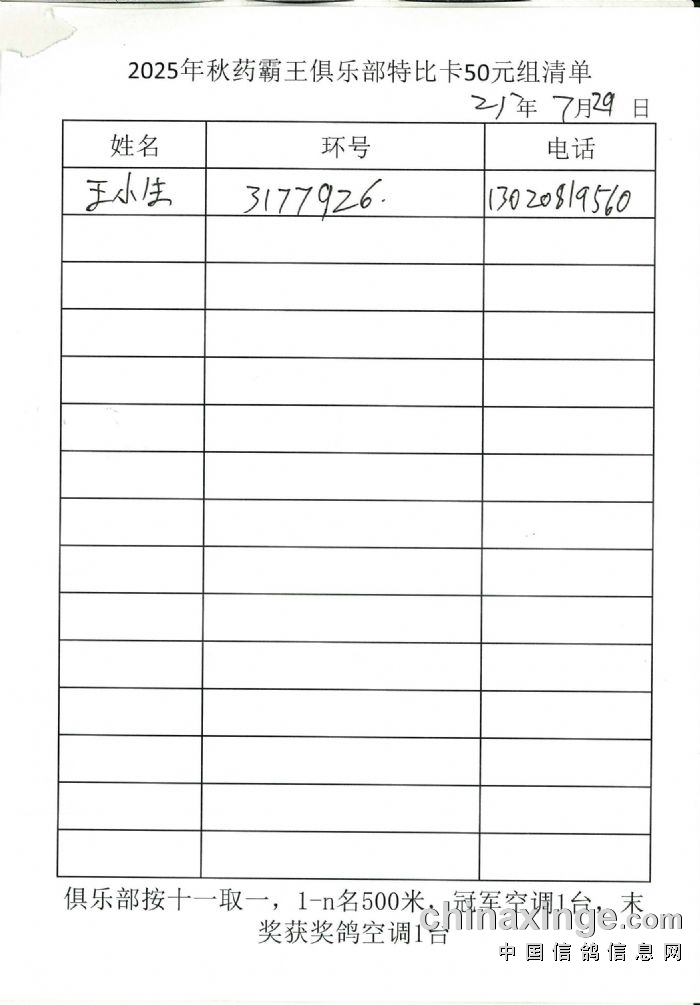 2025年秋药霸王俱乐部特比卡50元组清单
年 7月29日
姓名 环号 电话
王小生 3177926. 13020819560
俱乐部按十一取一，1-n名500米，冠军空调1台，末
奖获奖鸽空调1台
chinaxinge.com
中国信鸽信息网